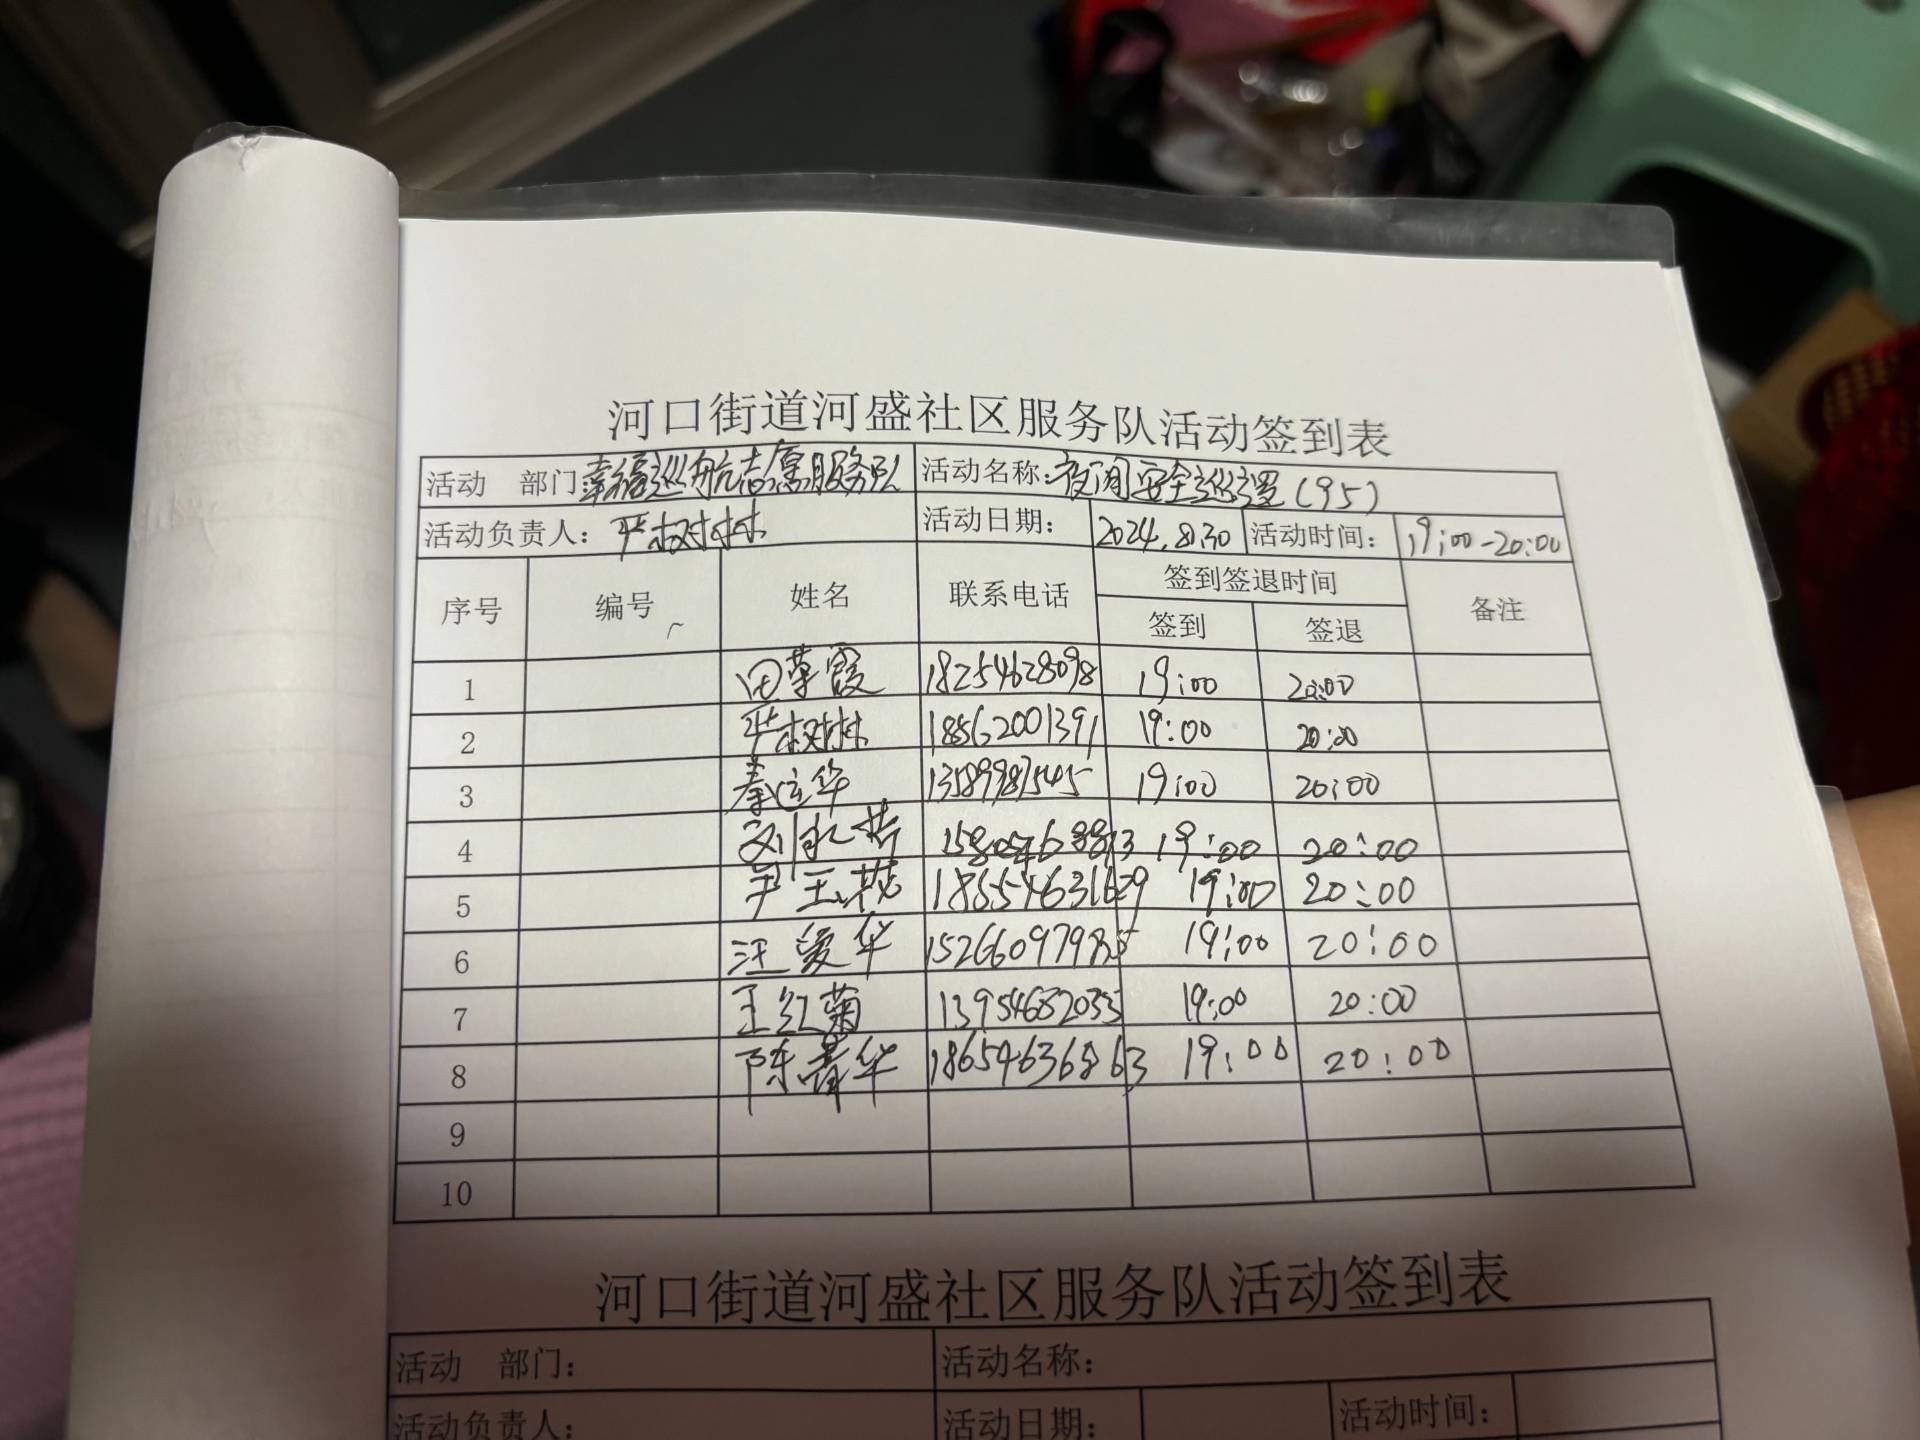 河口街道河盛社区服务队活动签到表
活动 部门：幸福巡航志愿服务队 活动名称：夜间安全巡逻（95）
活动负责人：严树林 活动日期： 2024.8.30 活动时间： 19:00-20:00
序号 编号 姓名 联系电话 签到签退时间 备注
签到 签退
1 田荣霞 18254628098 19:00 20:00
2 严树林 18562001391 19:00 20:00
3 秦立华 13589987545 19:00 20:00
4 19:00 20:00
5 尹玉 186554631629 19:00 20:00
6 汪爱华 15266097985 19:00 20:00
7 王红菊 13954682033 19:00 20:00
8 陈青华 18654636863 19:00 20:00
9
10
河口街道河盛社区服务队活动签到表
活动 部门： 活动名称：
活动负责人： 活动日期： 活动时间：